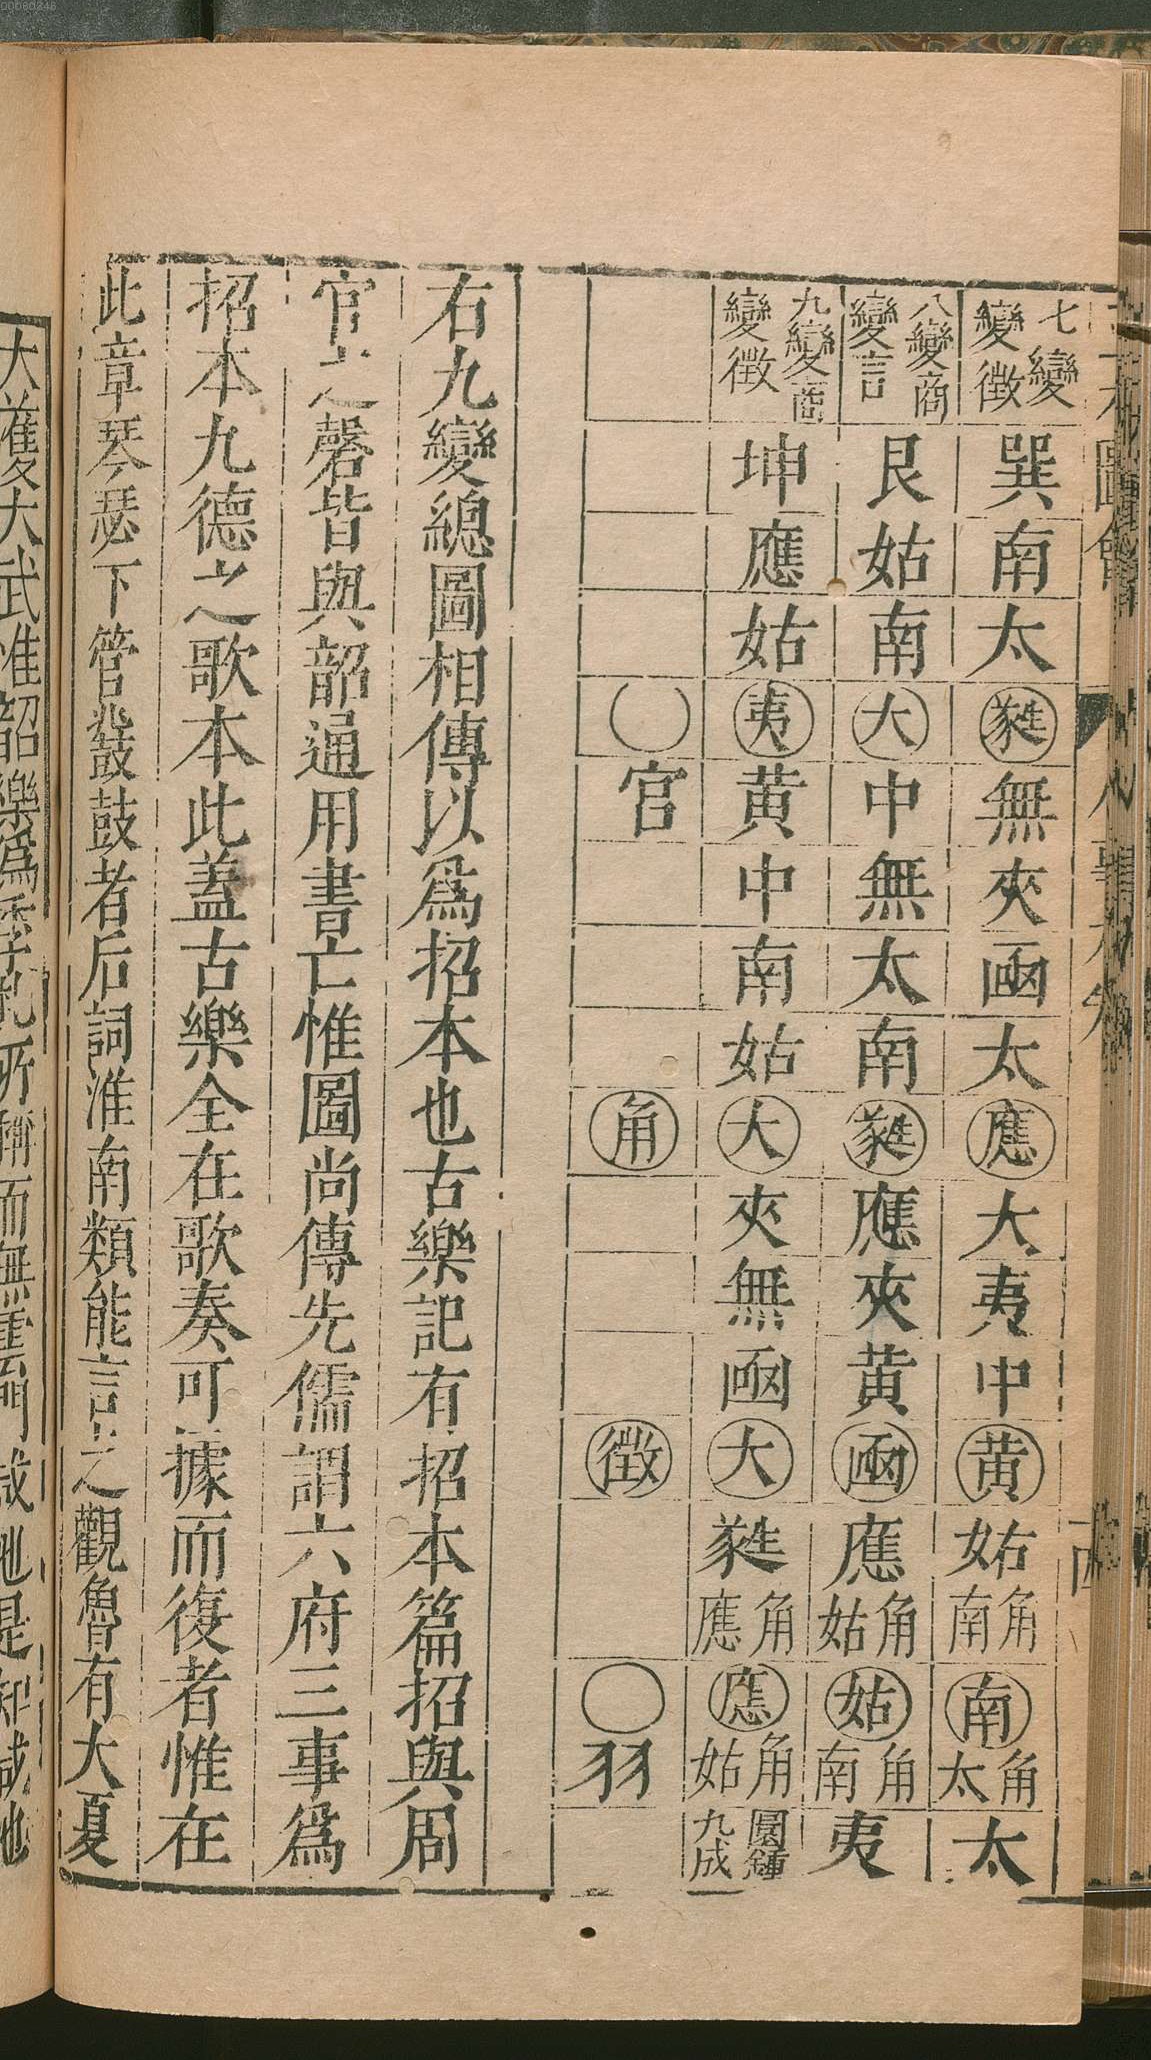 七變變徵巽南太蕤無夾凾太應大夷中黃姑南角南太角太
八變商變言艮姑南大中無太南蕤應夾黃凾應姑角姑南角夷
九變商變徵坤應姑夷黃中南姑大夾無凾大蕤應角應姑角圜鍾九成
〇官角徵〇羽
右九變總圖相傳以爲招本也古樂記有招本篇招與周
官之磬皆與韶通用書亡惟圖尚傳先儒謂六府三事爲
招本九德之歌本此蓋古樂全在歌奏可據而復者惟在
此章琴瑟下管鼗鼓者后詞淮南類能言之觀魯有大夏